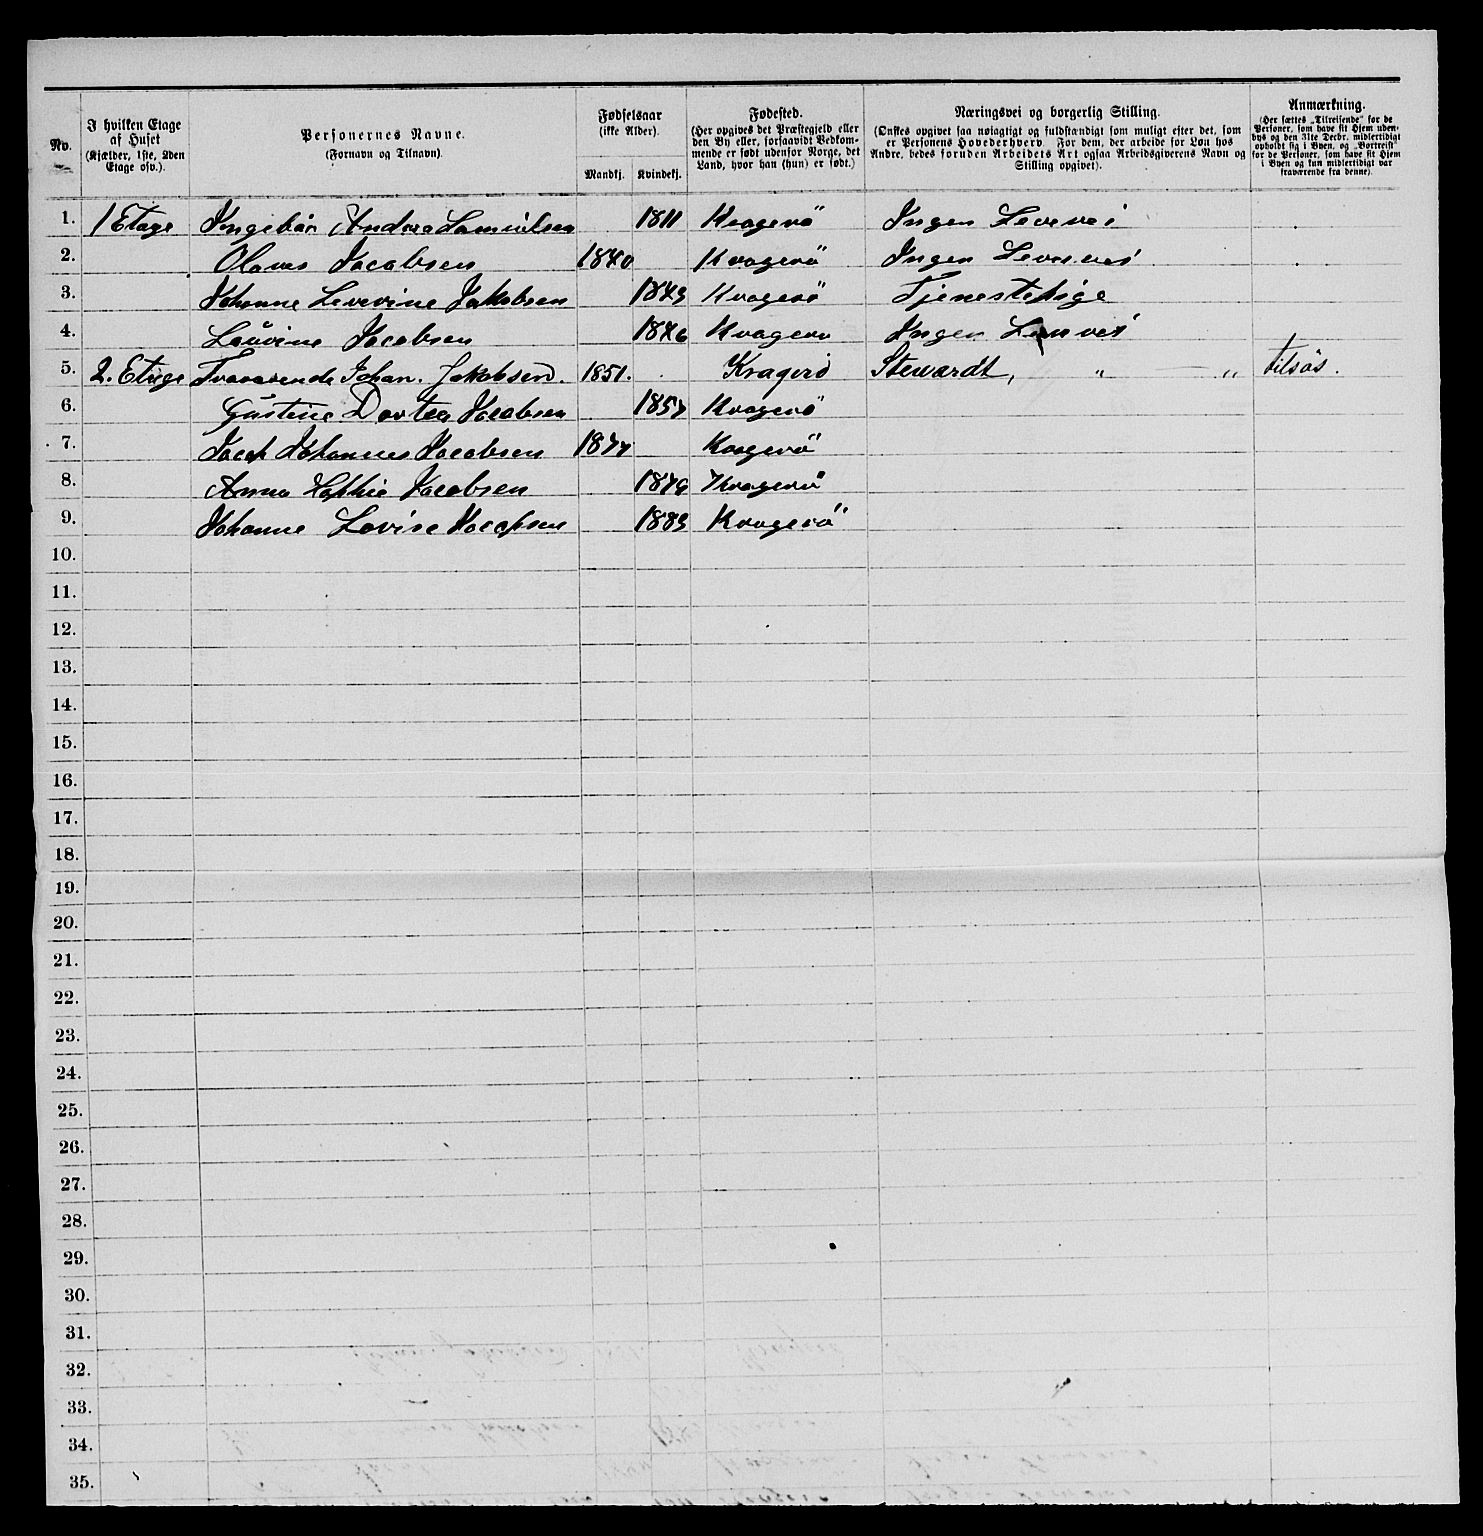 No.
I hvilken Etage
af Huset
(Kjælder, 1ste, 2den
Etage osv.).
Personernes Navne.
(Fornavn og Tilnavn).
Fødselsaar
(ikke Alder).
Mandkj. Kvindekj.
Fødested.
(Her opgives det Præstegjeld eller
den By eller, forsaavidt Vedkom-
mende er født udenfor Norge, det
Land, hvor han (hun) er født.)
Næringsvei og borgerlig Stilling.
(Ønskes opgivet saa nøiagtigt og fuldstændigt som muligt efter det, som
er Personens Hovederhverv. For dem, der arbeide for Løn hos
Andre, bedes foruden Arbeidets Art ogsaa Arbeidsgiverens Navn og
Stilling opgivet).
Anmærkning.
(Her sættes „Tilreisende“ for de
Personer, som have sit Hjem uden-
bys og den 31te Decbr. midlertidigt
opholdt sig i Byen, og „Bortreist“
for de Personer, som have sit Hjem
i Byen og kun midlertidigt var
fraværende fra denne).
1. 1 Etage Ingebör Andrea Samuelsen 1811 Kragerö Ingen Levevei
2. Olaves Jacobsen 1840 Kragerö Ingen Levevei
3. Johanne Severine Jakobsen 1843 Kragerö Tjenestepige
4. Lavine Jacobsen 1846 Kragerö Ingen Levevei
5. 2. Etage Johan. Jakobsen. 1851. Kragerö Stewardt, „ „ tilsös.
6. Gustine Dortea Jacobsen 1857 Kragerö
7. Jacob Johannes Jacobsen 1877 Kragerö
8. Anna Sophie Jacobsen 1879 Kragerö
9. Johanne Lovise Jacobsen 1883 Kragerö
10.
11.
12.
13.
14.
15.
16.
17.
18.
19.
20.
21.
22.
23.
24.
25.
26.
27.
28.
29.
30.
31.
32.
33.
34.
35.